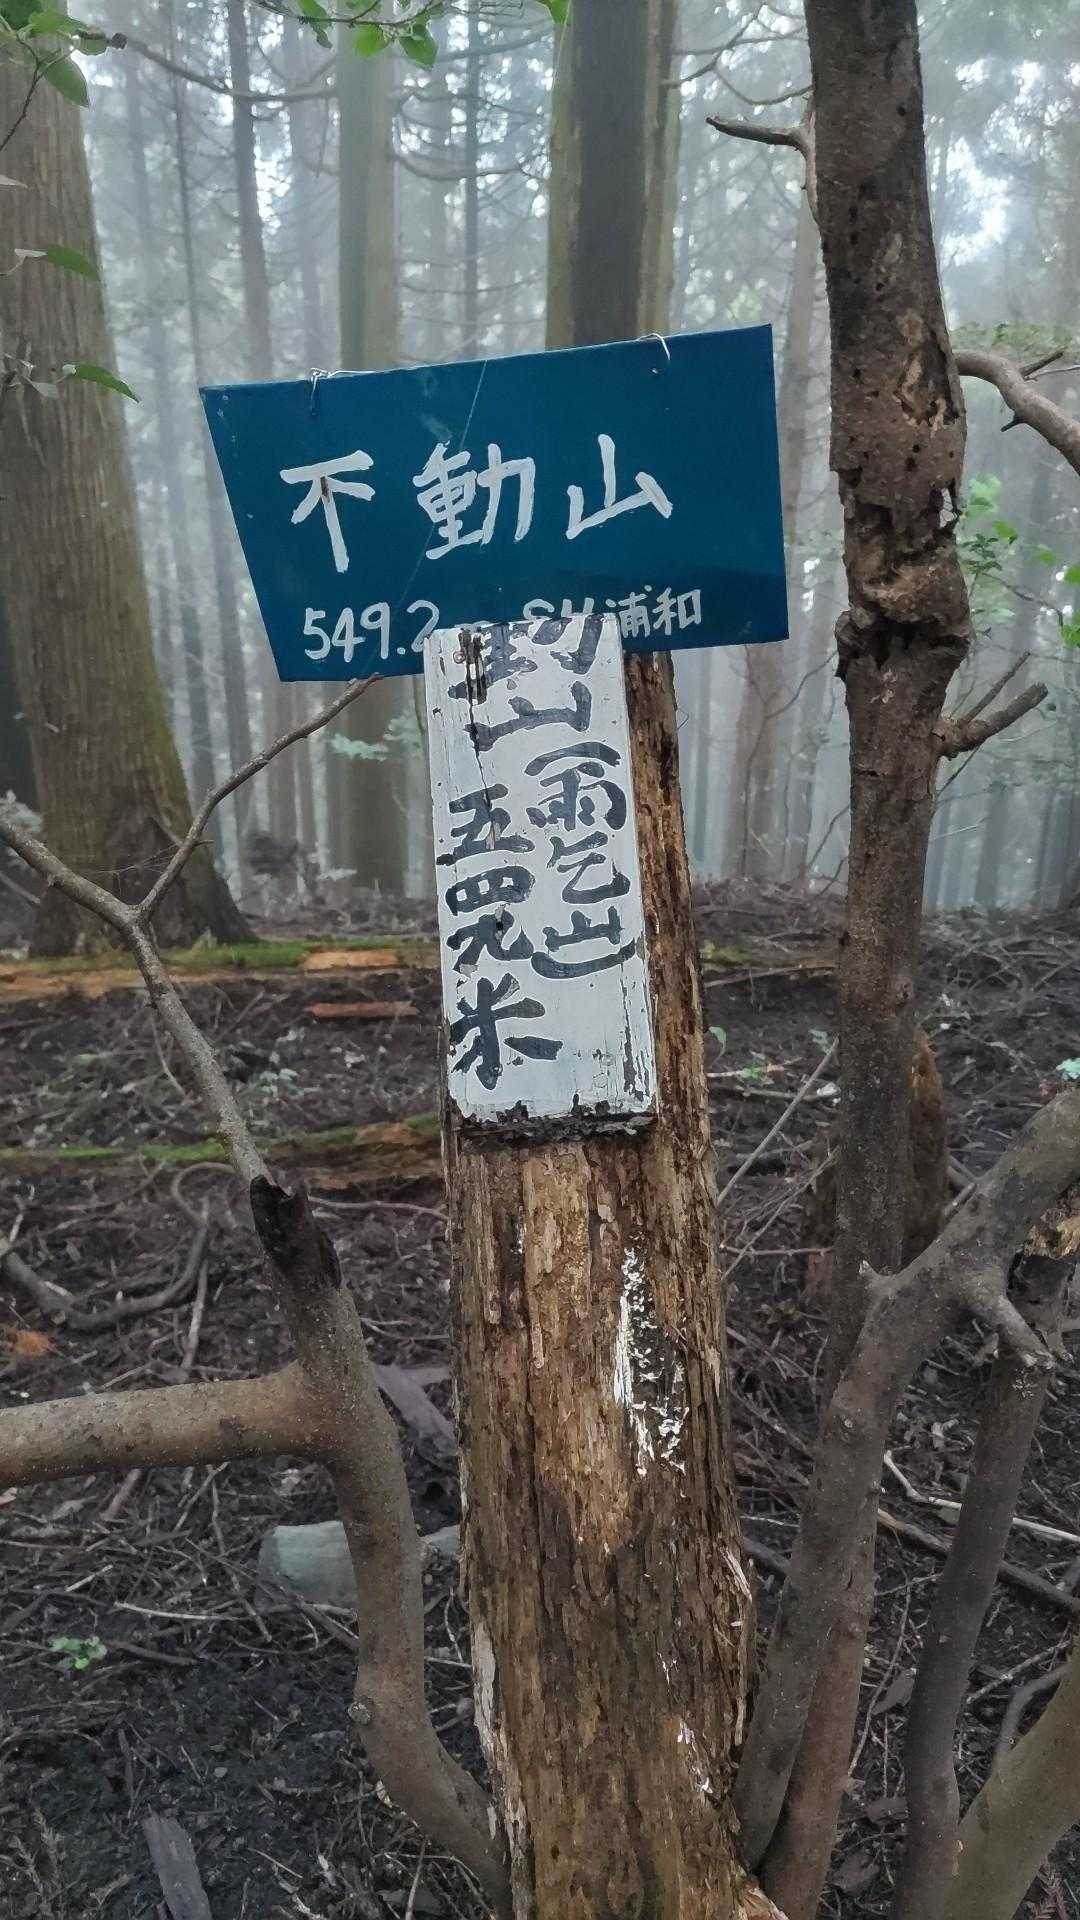 不動山
549.2m SY浦和
動山
(雨乞山)
五四九米